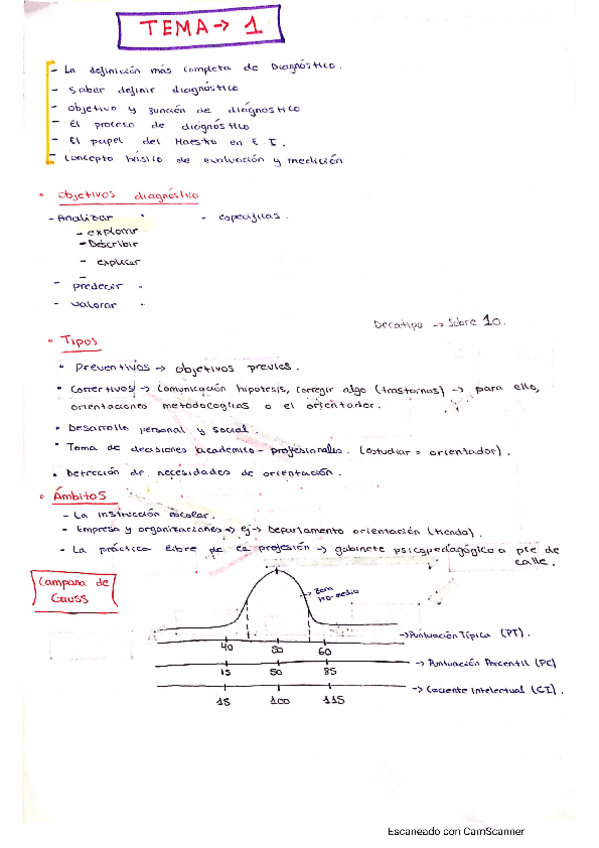 TEMA → 1
- La definición más completa de Diagnóstico.
- Saber definir diagnóstico
- objetivo y función de diágnostico
- El proceso de diágnóstico
- El papel del Maestro en E.I.
- Concepto básico de evaluación y medición
• Objetivos diagnóstico
- Analizar - específicas.
- explorar
- Describir
- explicar
-
- predecir -
- valorar -
Decatipo → sobre 10.
• Tipos
• Preventivos → objetivos previos.
• Correctivos → comunicación hipotesis, corregir algo (trastornos) → para ello,
orientaciones metodologicas o el orientador.
• Desarrollo personal y social.
• Toma de decisiones académico - profesionales. (estudiar = orientador).
• Detección de necesidades de orientación.
• Ámbitos
- La institución escolar.
- Empresa y organizaciones → ej → Departamento orientación (tienda).
- La práctica libre de la profesión → gabinete psicopedagógico a pie de
calle.
Campana de
Gauss
→ zona
promedio
40 50 60 → Puntuación Típica (PT).
15 50 85 → Puntuación Percentil (PC)
100 115 → Cociente intelectual (CI).
Escaneado con CamScanner